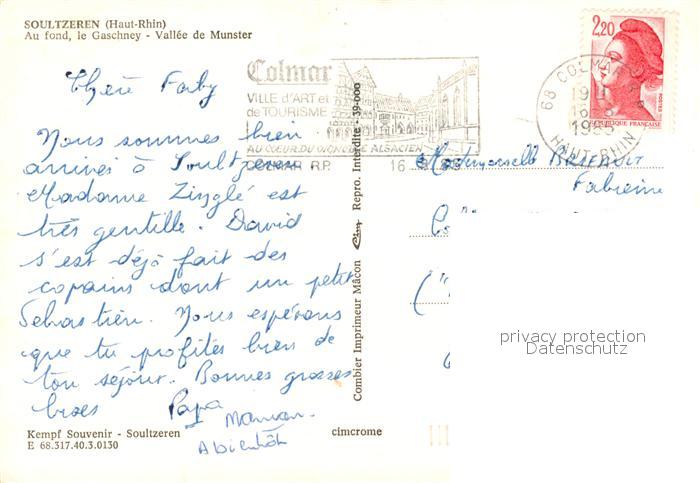 SOULTZEREN (Haut-Rhin)
Au fond, le Gaschney - Vallée de Munster
Chère Faby
Nous sommes bien
arrivés à Soultzeren
Madame Zinglé est
très gentille. David
s'est déjà fait des
copains dont un petit
Sebastien. Nous espérons
que tu profites bien de
ton séjour. Bonnes grosses
bises Papa
Maman.
A bientôt
Kempf Souvenir - Soultzeren
E 68.317.40.3.0130
cimcrome
Combier Imprimeur Mâcon Repro. Interdite - 39-000
Colmar
VILLE d'ART et
de TOURISME
AU CŒUR DU VIGNOBLE ALSACIEN
COLMAR R.P.
68 COLMAR R.P.
HAUT-RHIN
2,20
REPUBLIQUE FRANÇAISE
POSTES
Mademoiselle BRIFAULT
Fabienne
privacy protection
Datenschutz